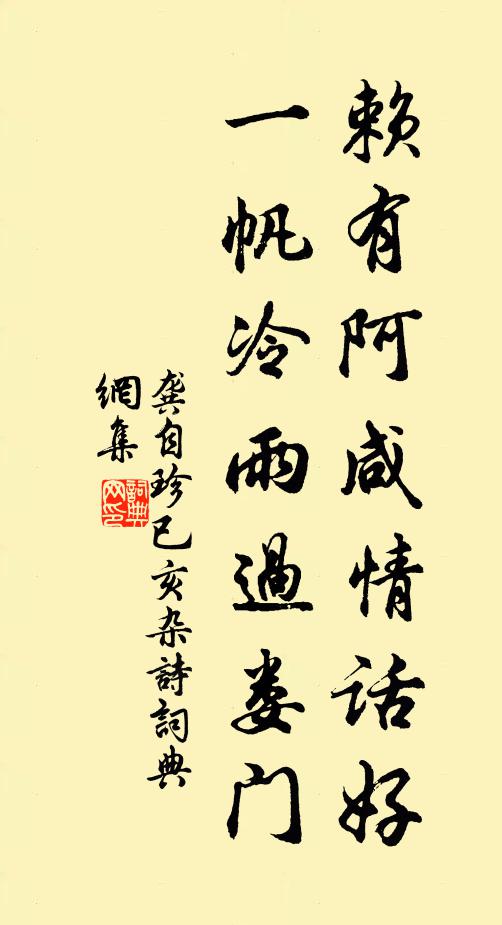 赖有阿咸情話好
一帆冷雨過娄门
龚自珍己亥杂詩詞典
網集
詞典网印